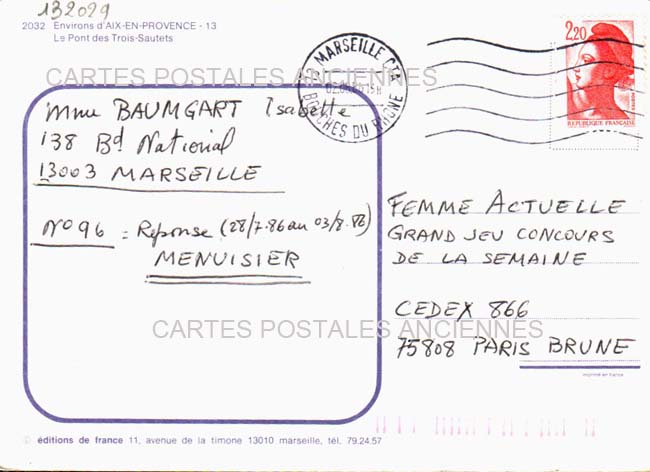 132029
2032 Environs d'AIX-EN-PROVENCE - 13
Le Pont des Trois-Sautets
MARSEILLE CTA
BOUCHES DU RHONE
2,20
REPUBLIQUE FRANÇAISE
CARTES POSTALES ANCIENNES
Mme BAUMGART Isabelle
138 Bd National
13003 MARSEILLE
N° 96 = Réponse (28/7.86 au 03/8.86)
MENUISIER
FEMME ACTUELLE
GRAND JEU CONCOURS
DE LA SEMAINE
CEDEX 866
75808 PARIS BRUNE
CARTES POSTALES ANCIENNES
imprimé en france
© éditions de france 11, avenue de la timone 13010 marseille, tél. 79.24.57